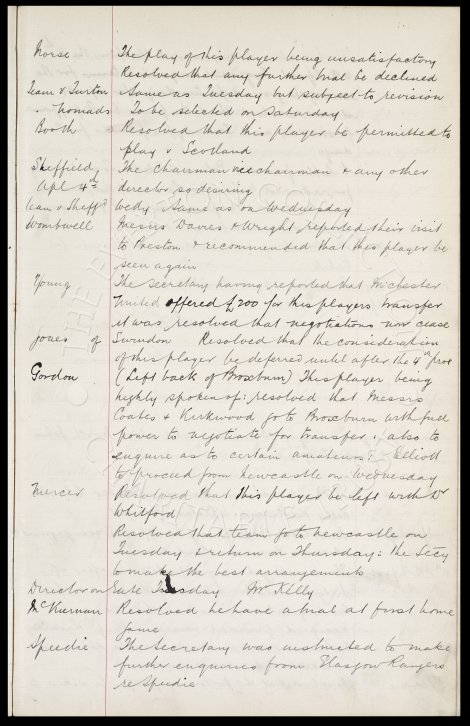 Morse The play of this player being unsatisfactory
Resolved that any further trial be declined
Team v Turton Same as Tuesday but subject to revision
" Nomads To be selected on Saturday
Booth Resolved that this player be permitted to
play v Scotland
Sheffield, The chairman vice chairman & any other
Apl 4th director so desiring
Team v Sheffd Wedy Same as on Wednesday
Wombwell Messrs Davies & Wright reported their visit
to Preston & recommended that this player be
seen again
Young The secretary having reported that Mchester
United offered £200 for this players transfer
it was resolved that negotiations now cease
Jones of Swindon Resolved that the consideration
of this player be deferred until after the 4th prox
Gordon (Left back of Broxburn) This player being
highly spoken of: resolved that Messrs
Coates & Kirkwood go to Broxburn with full
power to negotiate for transfer: also to
enquire as to certain amateurs: Elliott
to proceed from Newcastle on Wednesday
Mercer Resolved that this player be left with Dr
Whitford
Resolved that team go to Newcastle on
Tuesday & return on Thursday: the Secy
to make the best arrangements
Director on Gate Tuesday Mr Kelly
McKiernan Resolved he have a trial at first home
game
Speedie The Secretary was instructed to make
further enquiries from Glasgow Rangers
re Speedie